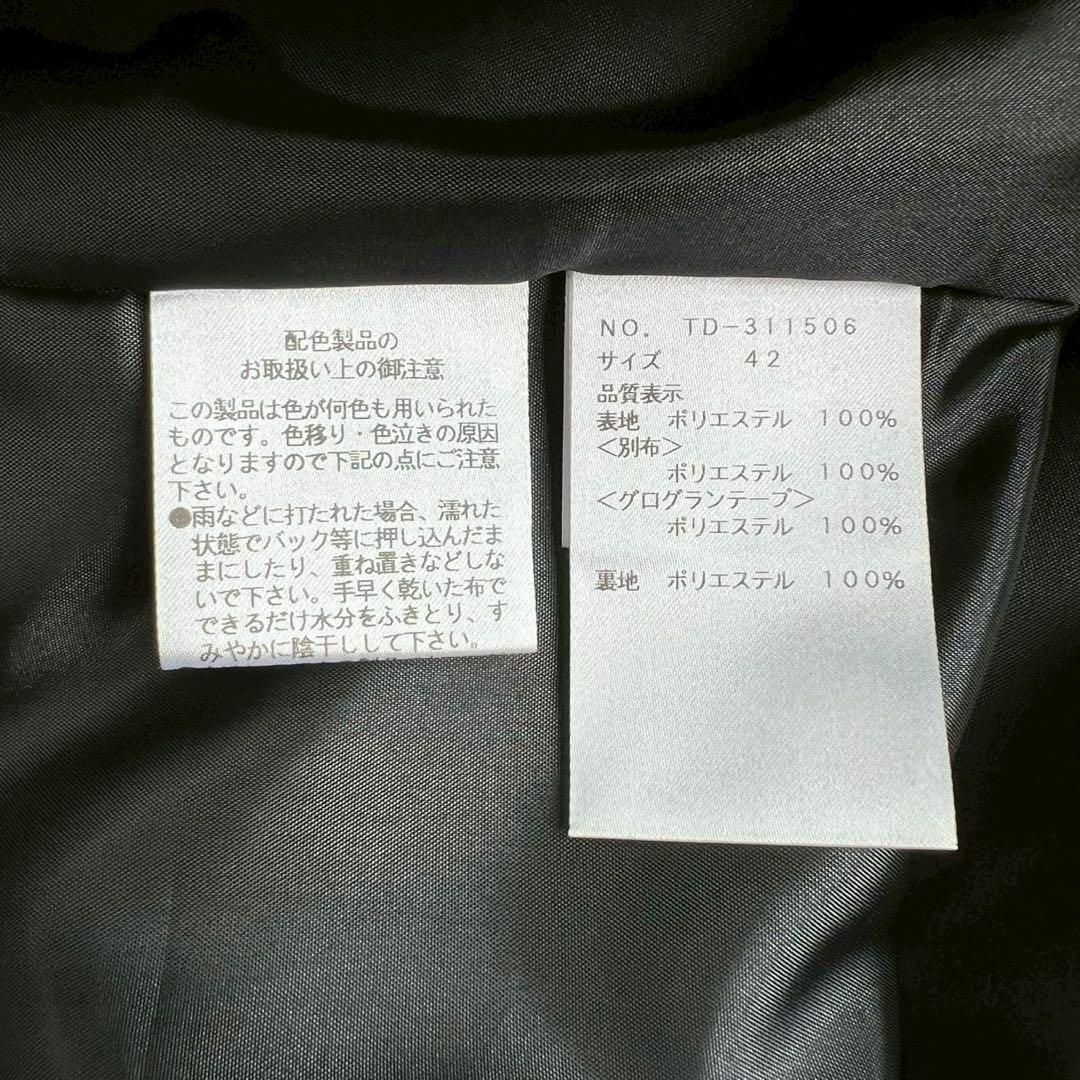 配色製品の
お取扱い上の御注意
この製品は色が何色も用いられた
ものです。色移り・色泣きの原因
となりますので下記の点にご注意
下さい。
●雨などに打たれた場合、濡れた
状態でバック等に押し込んだま
まにしたり、重ね置きなどしな
いで下さい。手早く乾いた布で
できるだけ水分をふきとり、す
みやかに陰干しして下さい。
NO. TD-311506
サイズ 42
品質表示
表地 ポリエステル 100%
<別布>
ポリエステル 100%
<グログランテープ>
ポリエステル 100%
裏地 ポリエステル 100%